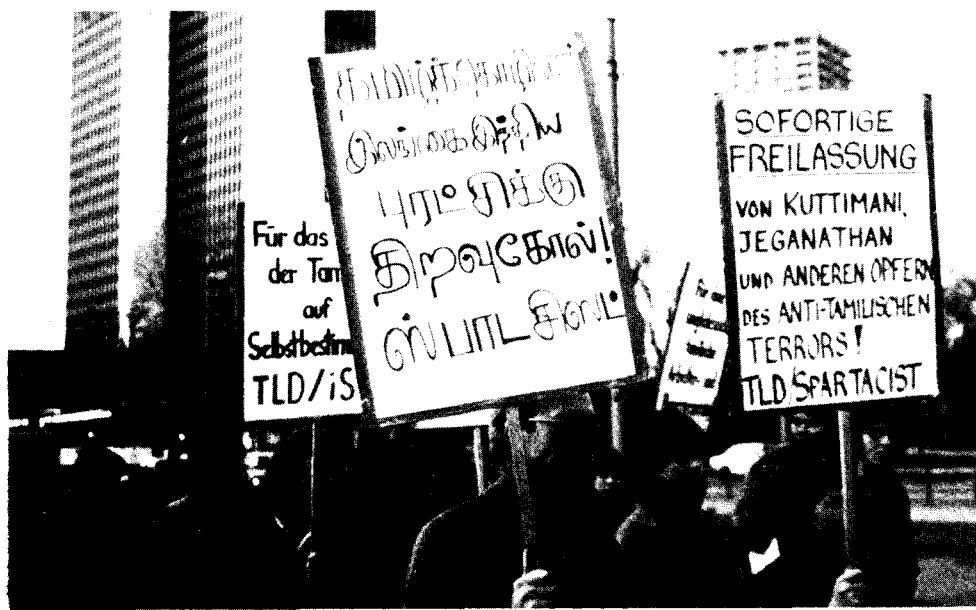 Für das
der Tam
auf
Selbstbestim
TLD/iS
இலங்கை இந்திய
புரட்சிக்கு
திறவுகோல்!
ஸ்பாடசிஸட்
Für eine
SOFORTIGE
FREILASSUNG
VON KUTTIMANI,
JEGANATHAN
UND ANDEREN OPFERN
DES ANTI-TAMILISCHEN
TERRORS!
TLD/SPARTACIST